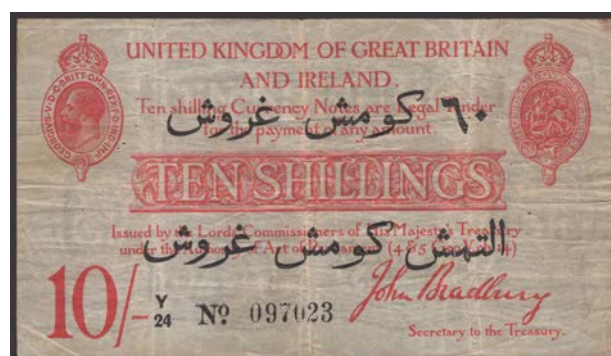 UNITED KINGDOM OF GREAT BRITAIN
AND IRELAND.
Ten shilling Currency Notes are Legal Tender
٦٠ كومش غروش
for the payment of any amount.
TEN SHILLINGS
Issued by the Lords Commissioners of His Majesty's Treasury
التمش كومش غروش
under the Authority of Act of Parliament (4 & 5 Geo.V. ch.14)
10/- Y/24 Nº 097023
John Bradbury
Secretary to the Treasury.